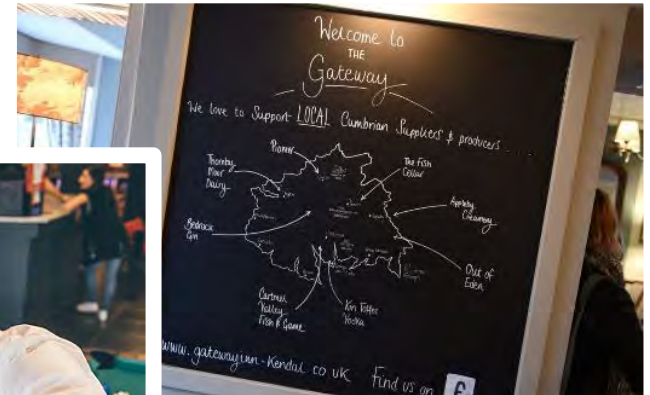 Welcome to
THE
Gateway
We love to Support LOCAL Cumbrian Suppliers & producers ....
Pioneer
The Fish
Cellar
Thornby
Moor
Dairy
Appleby
Creamery
Bedrock
Gin
Out of
Eden
Cartmel
Valley
Fish & Game
Kin Toffee
Vodka
www.gatewayinn-Kendal.co.uk
Find us on f